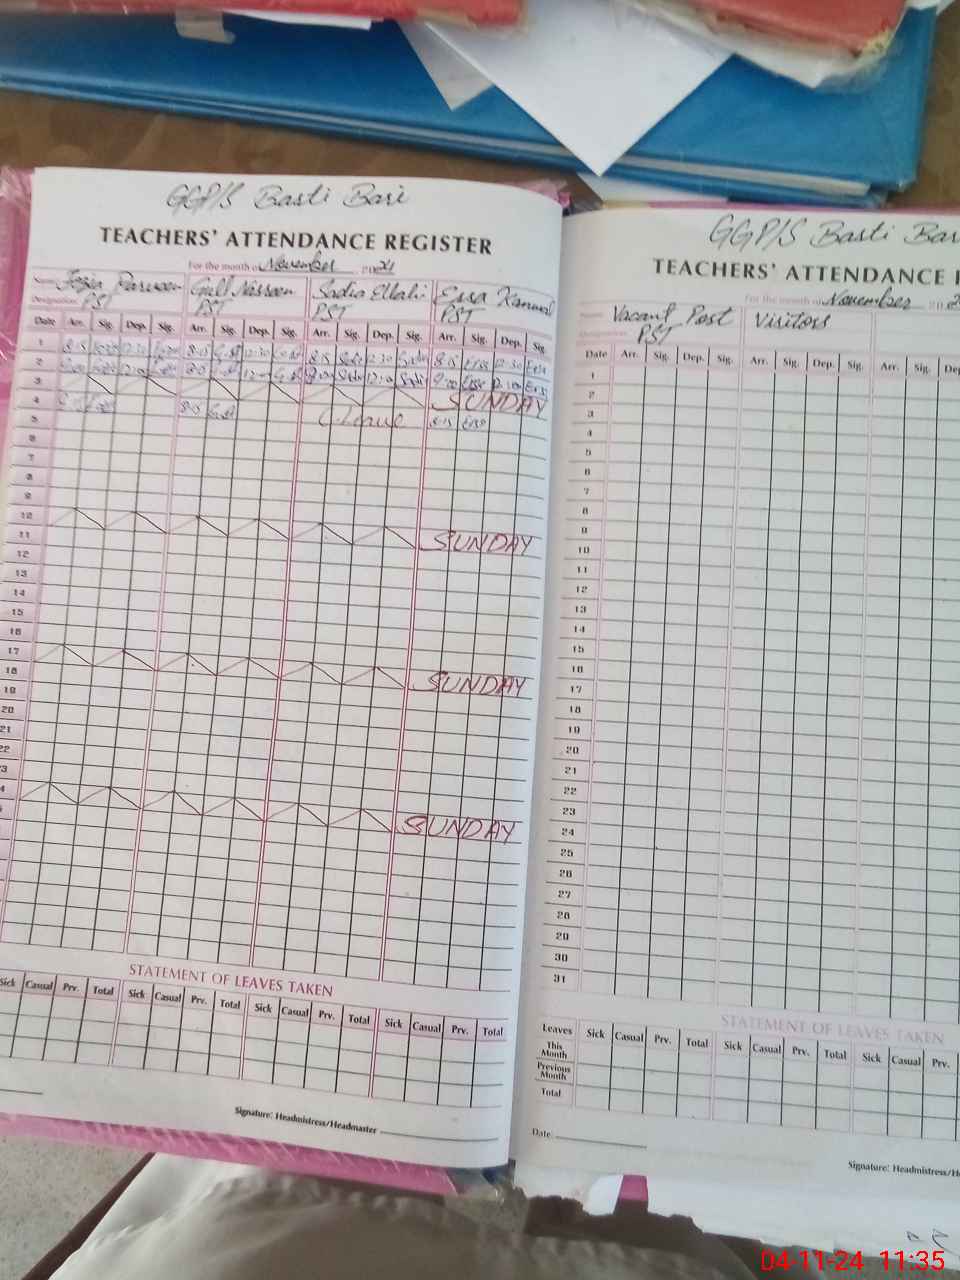 GGP/S Basti Bari
TEACHERS' ATTENDANCE REGISTER
For the month of November 2024
Name Fozia Parveen Gull Nasreen Sadia Ellahi Erra Kanwal
Designation PST PST PST PST
Date Arr. Sig. Dep. Sig. Arr. Sig. Dep. Sig. Arr. Sig. Dep. Sig. Arr. Sig. Dep. Sig.
1 8-15 12-30 8-15 12-30 8-15 12-30 8-15 12-30
2 12-00 12-00 9-00
3 SUNDAY
4 8-15 C.Leave 8-15
5
6
7
8
9
10 SUNDAY
11
12
13
14
15
16
17 SUNDAY
18
19
20
21
22
23
24 SUNDAY
STATEMENT OF LEAVES TAKEN
Sick Casual Prv. Total Sick Casual Prv. Total Sick Casual Prv. Total Sick Casual Prv. Total
Signature: Headmistress/Headmaster
GGP/S Basti Bar
TEACHERS' ATTENDANCE
For the month of November 20
Name Vacant Post Visitors
Designation PST
Date Arr. Sig. Dep. Sig. Arr. Sig. Dep. Sig. Arr. Sig. Dep
1
2
3
4
5
6
7
8
9
10
11
12
13
14
15
16
17
18
19
20
21
22
23
24
25
26
27
28
29
30
31
STATEMENT OF LEAVES TAKEN
Leaves Sick Casual Prv. Total Sick Casual Prv. Total Sick Casual Prv.
This Month
Previous Month
Total
Date:
Signature: Headmistress/H
04-11-24 11:35